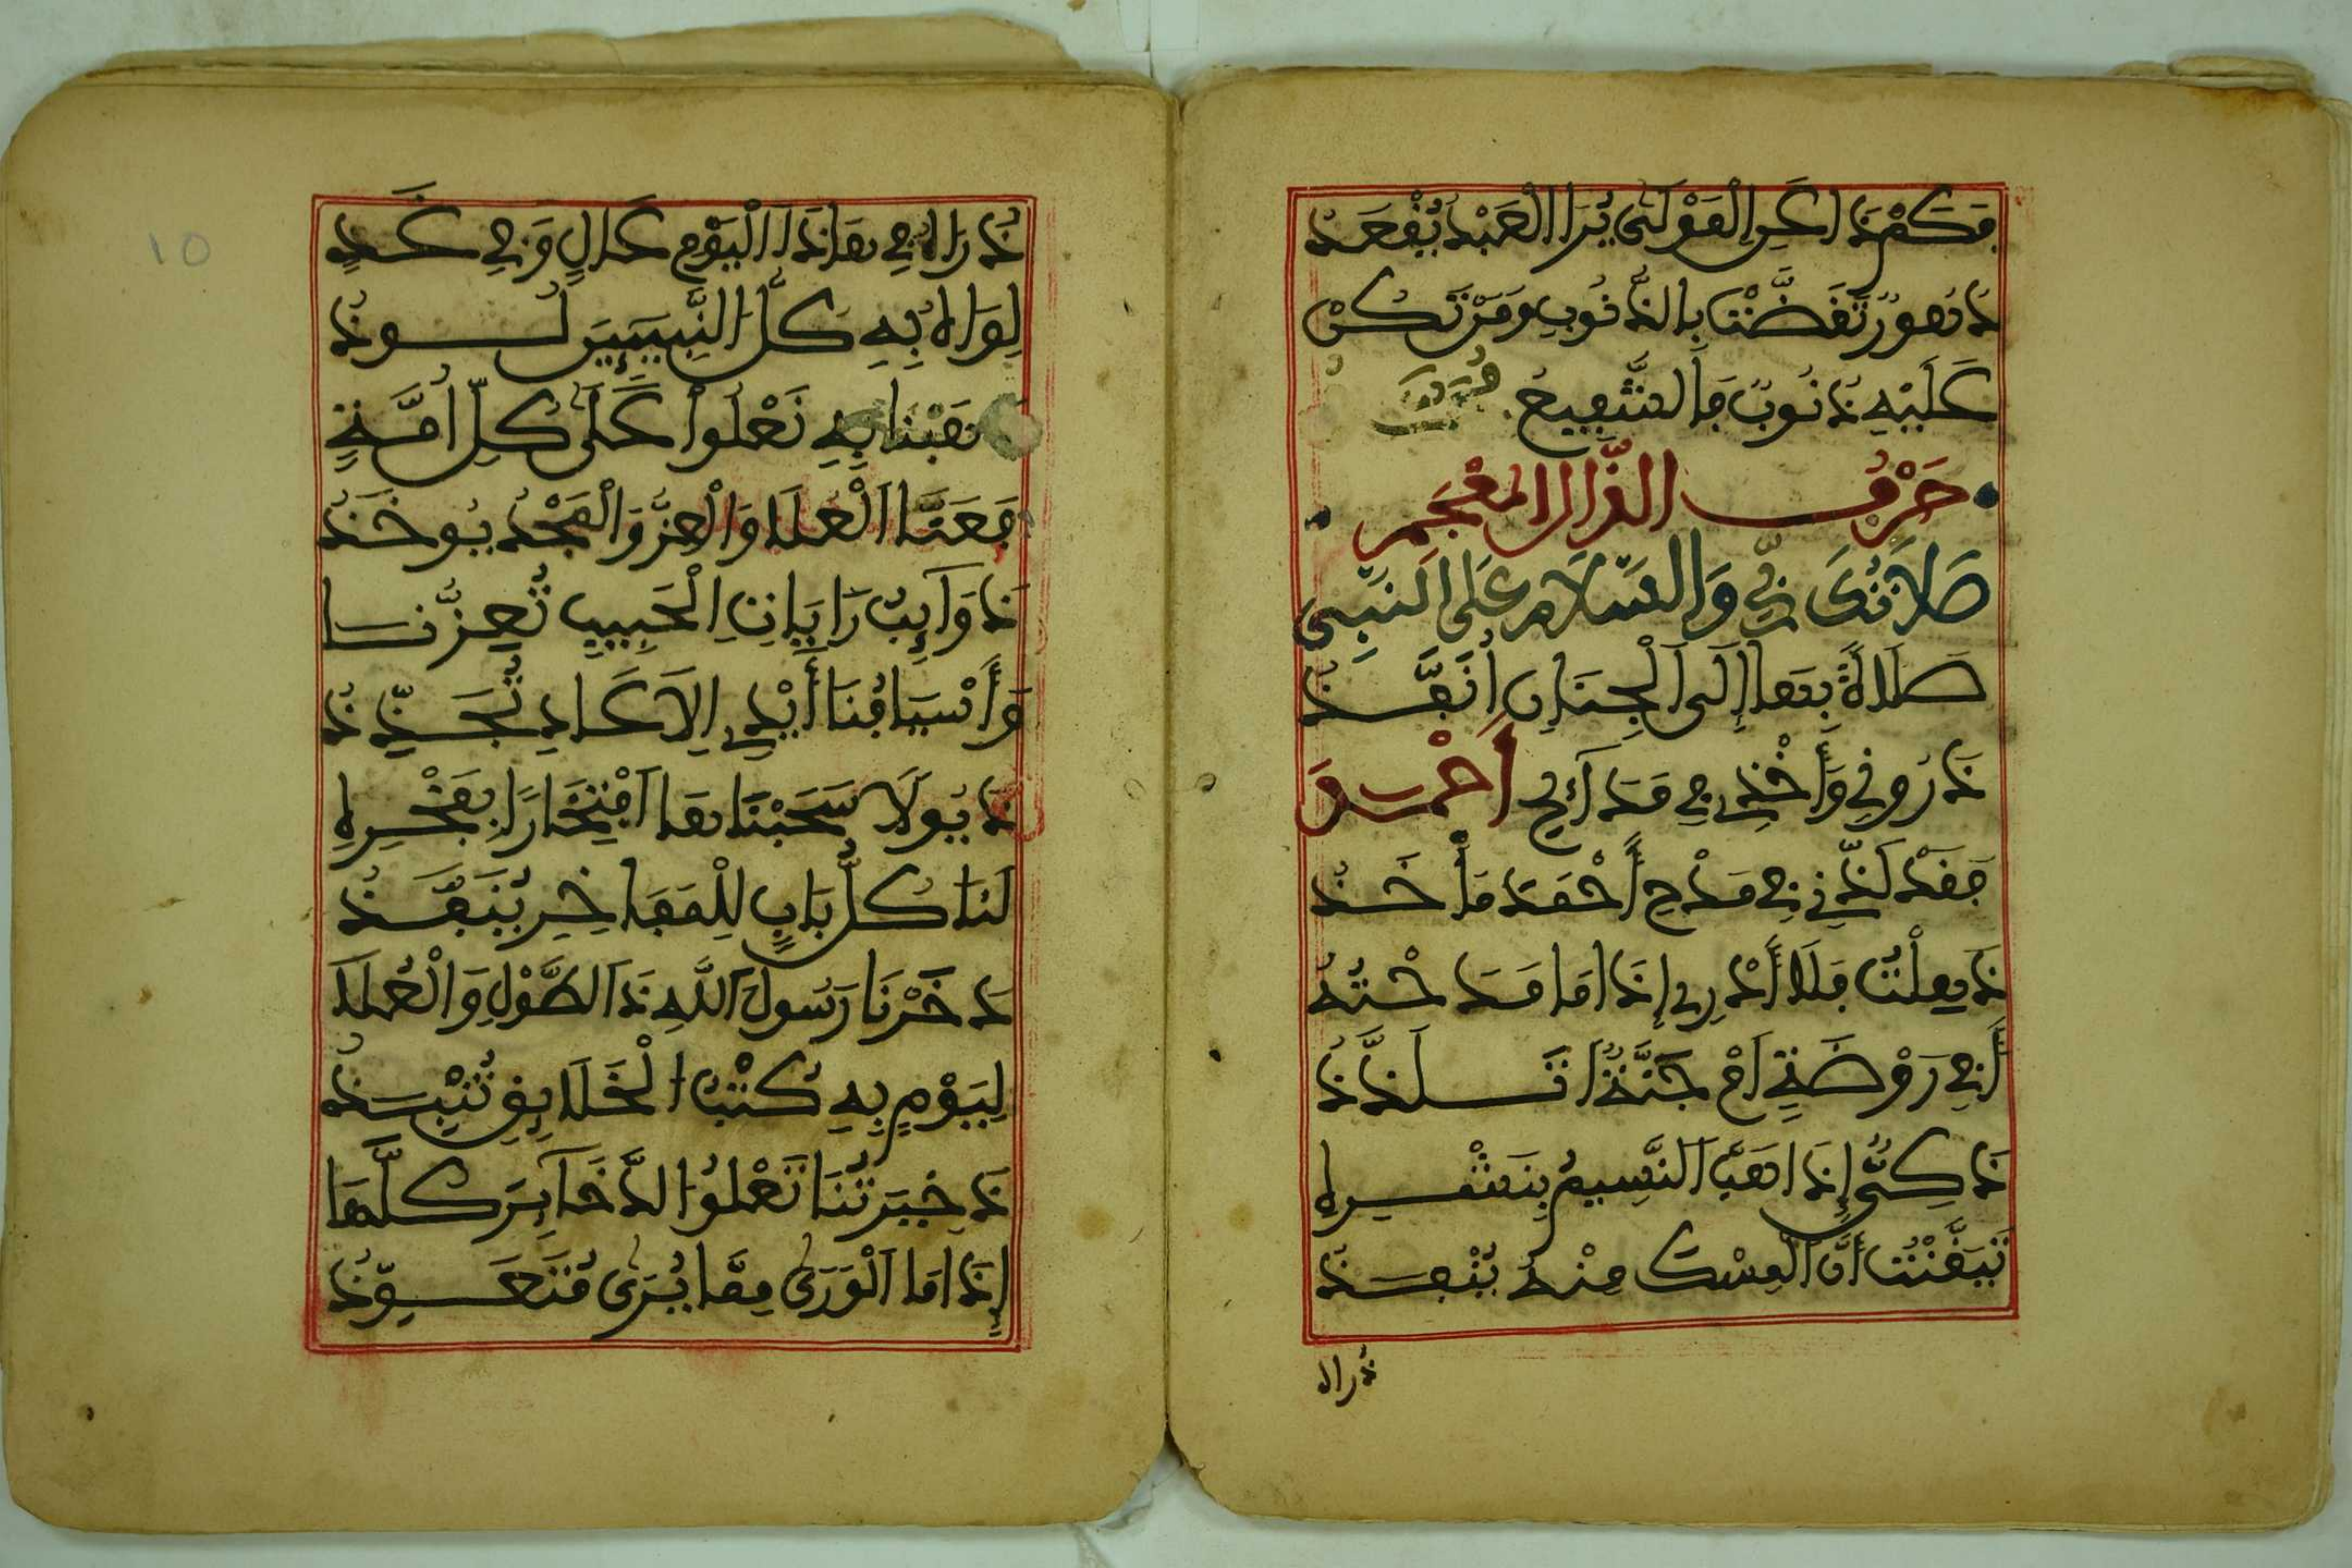 فكم ذا عن المولى يرا العبد يفعد
ذ نهور تفضت بالذنوب ومن تكن
عليه ذنوب فالشفيع
حرف الذال المعجم
صلاتك ربي والسلام على النبي
صَلَاةً بِهَا إِلَى الْجِنَانِ أُنَفَّذُ
ذَرُونِي وَأَخْذِي فِي مَدَائِحِ أَحْمَدَ
فَقَدْ لَذَّ لِي فِي مَدْحِ أَحْمَدَ مَأْخَذُ
ذَهِلْتُ فَلَا أَدْرِي إِذَا مَا مَدَحْتُهُ
أَفِي رَوْضَةٍ أَمْ جَنَّةٍ أَتَلَذَّذُ
ذَكِيٌّ إِذَا هَبَّ النَّسِيمُ بِنَشْرِهِ
تَيَقَّنْتُ أَنَّ الْمِسْكَ مِنْهُ يُنْبَذُ
ذراه
ذُرَاهُ فِي هَذَا الْيَوْمِ عَالٍ وَفِي غَدٍ
لِوَاهُ بِهِ كُلُّ النَّبِيِّينَ لُوَّذُ
بِهِ نَعْلُوا عَلَى كُلِّ أُمَّةٍ
فَعَنَّا الْعُلَا وَالْعِزُّ وَالْمَجْدُ يُوخَذُ
ذَوَائِبُ رَايَاتِ الْحَبِيبِ تُعِزُّنَا
وَأَسْيَافُنَا أَيْدِي الْأَعَادِي تُجَذِّذُ
ذُيُولًا سَحَبْنَاهَا افْتِخَارًا بِفَخْرِهِ
لَنَا كُلُّ بَابٍ لِلْمَفَاخِرِ يَنْفُذُ
ذَخَرْنَا رَسُولَ اللَّهِ ذَا الطَّوْلِ وَالْعُلَا
لِيَوْمٍ بِهِ كُتْبُ الْخَلَائِقِ تُنْبَذُ
ذَخِيرَتُنَا تَعْلُوا الذَّخَائِرَ كُلَّهَا
إِذَا مَا الْوَرَى مِمَّا يُرَى مُتَعَوِّذُ
10